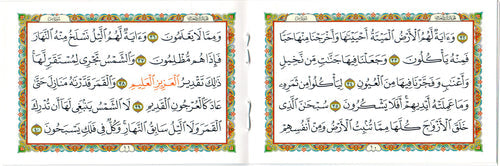 وَءَايَةٌ لَّهُمُ الْأَرْضُ الْمَيْتَةُ أَحْيَيْنَاهَا وَأَخْرَجْنَا مِنْهَا حَبًّا
فَمِنْهُ يَأْكُلُونَ ٣٣ وَجَعَلْنَا فِيهَا جَنَّاتٍ مِّن نَّخِيلٍ
وَأَعْنَابٍ وَفَجَّرْنَا فِيهَا مِنَ الْعُيُونِ ٣٤ لِيَأْكُلُوا مِن ثَمَرِهِ
وَمَا عَمِلَتْهُ أَيْدِيهِمْ أَفَلَا يَشْكُرُونَ ٣٥ سُبْحَانَ الَّذِي
خَلَقَ الْأَزْوَاجَ كُلَّهَا مِمَّا تُنبِتُ الْأَرْضُ وَمِنْ أَنفُسِهِمْ
١٠
وَمِمَّا لَا يَعْلَمُونَ ٣٦ وَءَايَةٌ لَّهُمُ اللَّيْلُ نَسْلَخُ مِنْهُ النَّهَارَ
فَإِذَا هُم مُّظْلِمُونَ ٣٧ وَالشَّمْسُ تَجْرِي لِمُسْتَقَرٍّ لَّهَا
ذَٰلِكَ تَقْدِيرُ الْعَزِيزِ الْعَلِيمِ ٣٨ وَالْقَمَرَ قَدَّرْنَاهُ مَنَازِلَ حَتَّىٰ
عَادَ كَالْعُرْجُونِ الْقَدِيمِ ٣٩ لَا الشَّمْسُ يَنبَغِي لَهَا أَن تُدْرِكَ
الْقَمَرَ وَلَا اللَّيْلُ سَابِقُ النَّهَارِ وَكُلٌّ فِي فَلَكٍ يَسْبَحُونَ ٤٠
١١